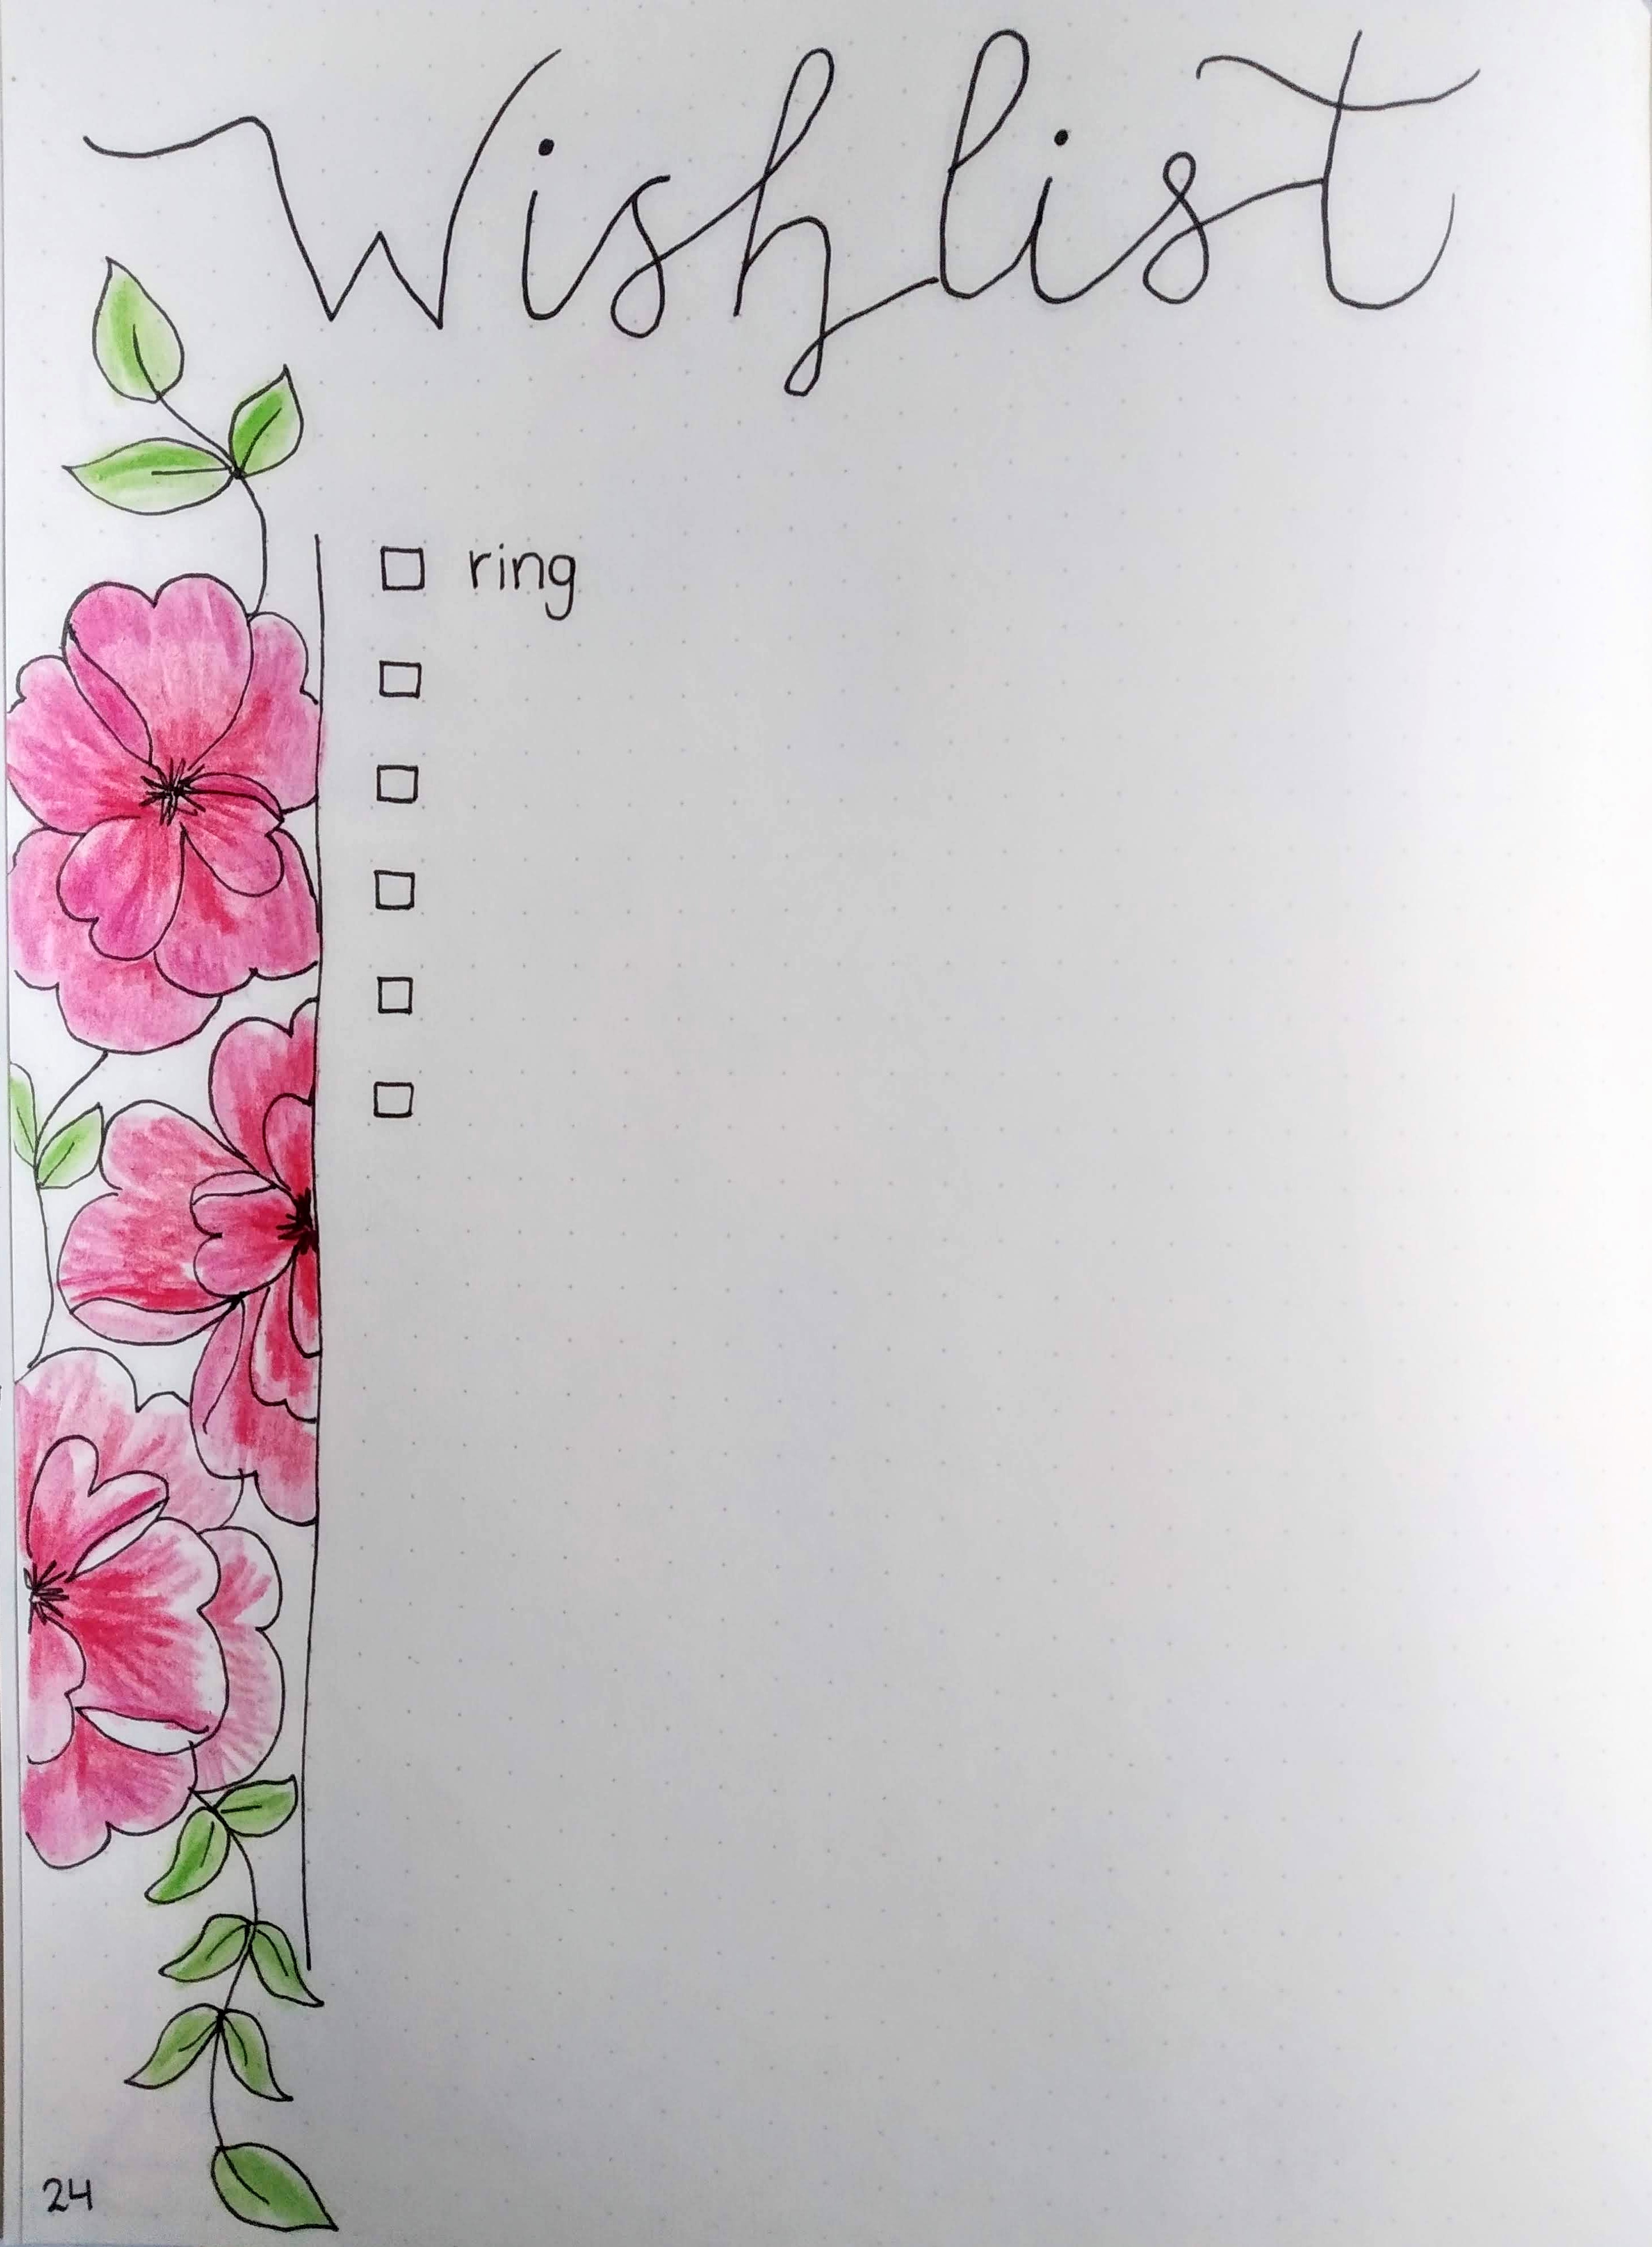 Wishlist
ring
24